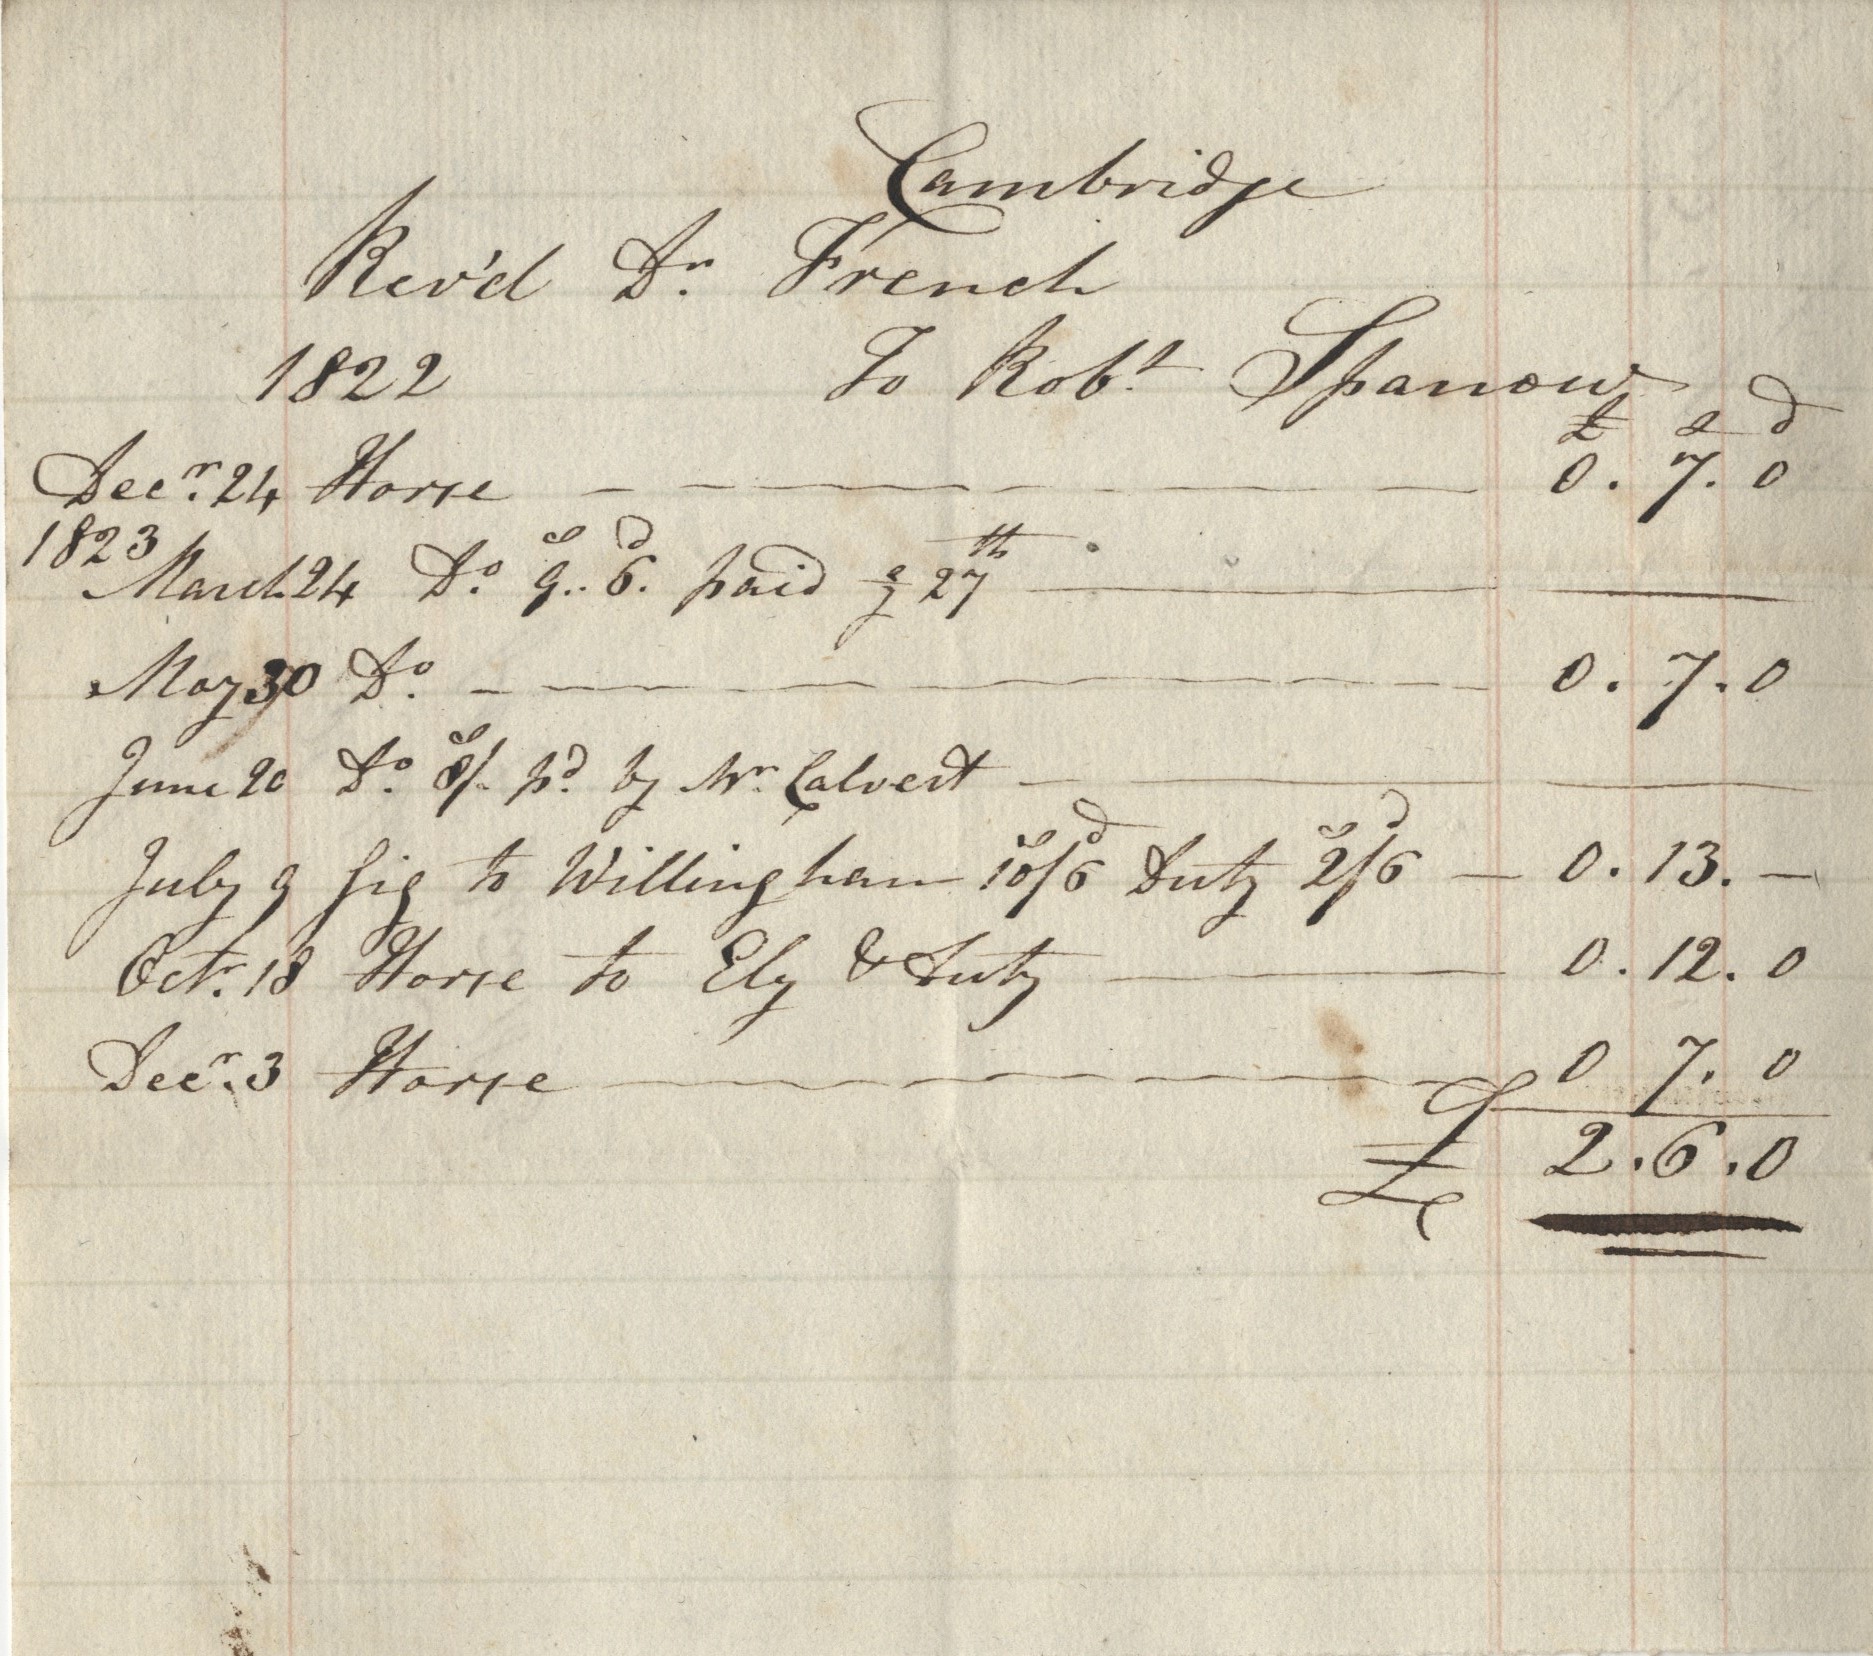 Cambridge
Rev'd Dr. French
1822 To Robt. Sparrow
£ s d
Decr. 24 Horse 0. 7. 0
1823
March 24 Do. 9s.. 6d. paid 27th
May 30 Do. 0. 7. 0
June 20 Do. 8s/- pd. by Mr. Calvert
July 9 Gig to Willingham 10s/6d Duty 2s/6d — 0. 13. —
Octr. 18 Horse to Ely & Duty 0. 12. 0
Decr. 3 Horse 0 7. 0
£ 2. 6. 0